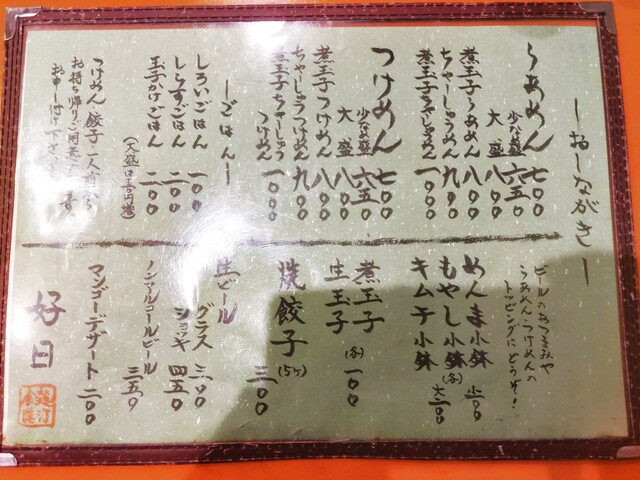 ―おしながき―
らあめん 七〇〇
少な盛 六五〇
大盛 八〇〇
煮玉子らあめん 八〇〇
ちゃーしゅうめん 九〇〇
煮玉子ちゃーしゅうめん 一〇〇〇
つけめん 七〇〇
少な盛 六五〇
大盛 八〇〇
煮玉子つけめん 八〇〇
ちゃーしゅうつけめん 九〇〇
煮玉子ちゃーしゅうつけめん 一〇〇〇
―ごはん―
しろいごはん 一〇〇
しらすごはん 二〇〇
玉子かけごはん 二〇〇
(大盛は五〇円増)
つけめん、餃子
お持ち帰りご用意
お申し付け下さい
ビールのおつまみや
らあめん・つけめんの
トッピングにどうぞ!
めんま小鉢
もやし小鉢(各)
キムチ小鉢
煮玉子
生玉子 (各)一〇〇
焼餃子(5ヶ) 三〇〇
生ビール
グラス 三〇〇
ジョッキ 四五〇
ノンアルコールビール 三五〇
マンゴーデザート 二〇〇
好日